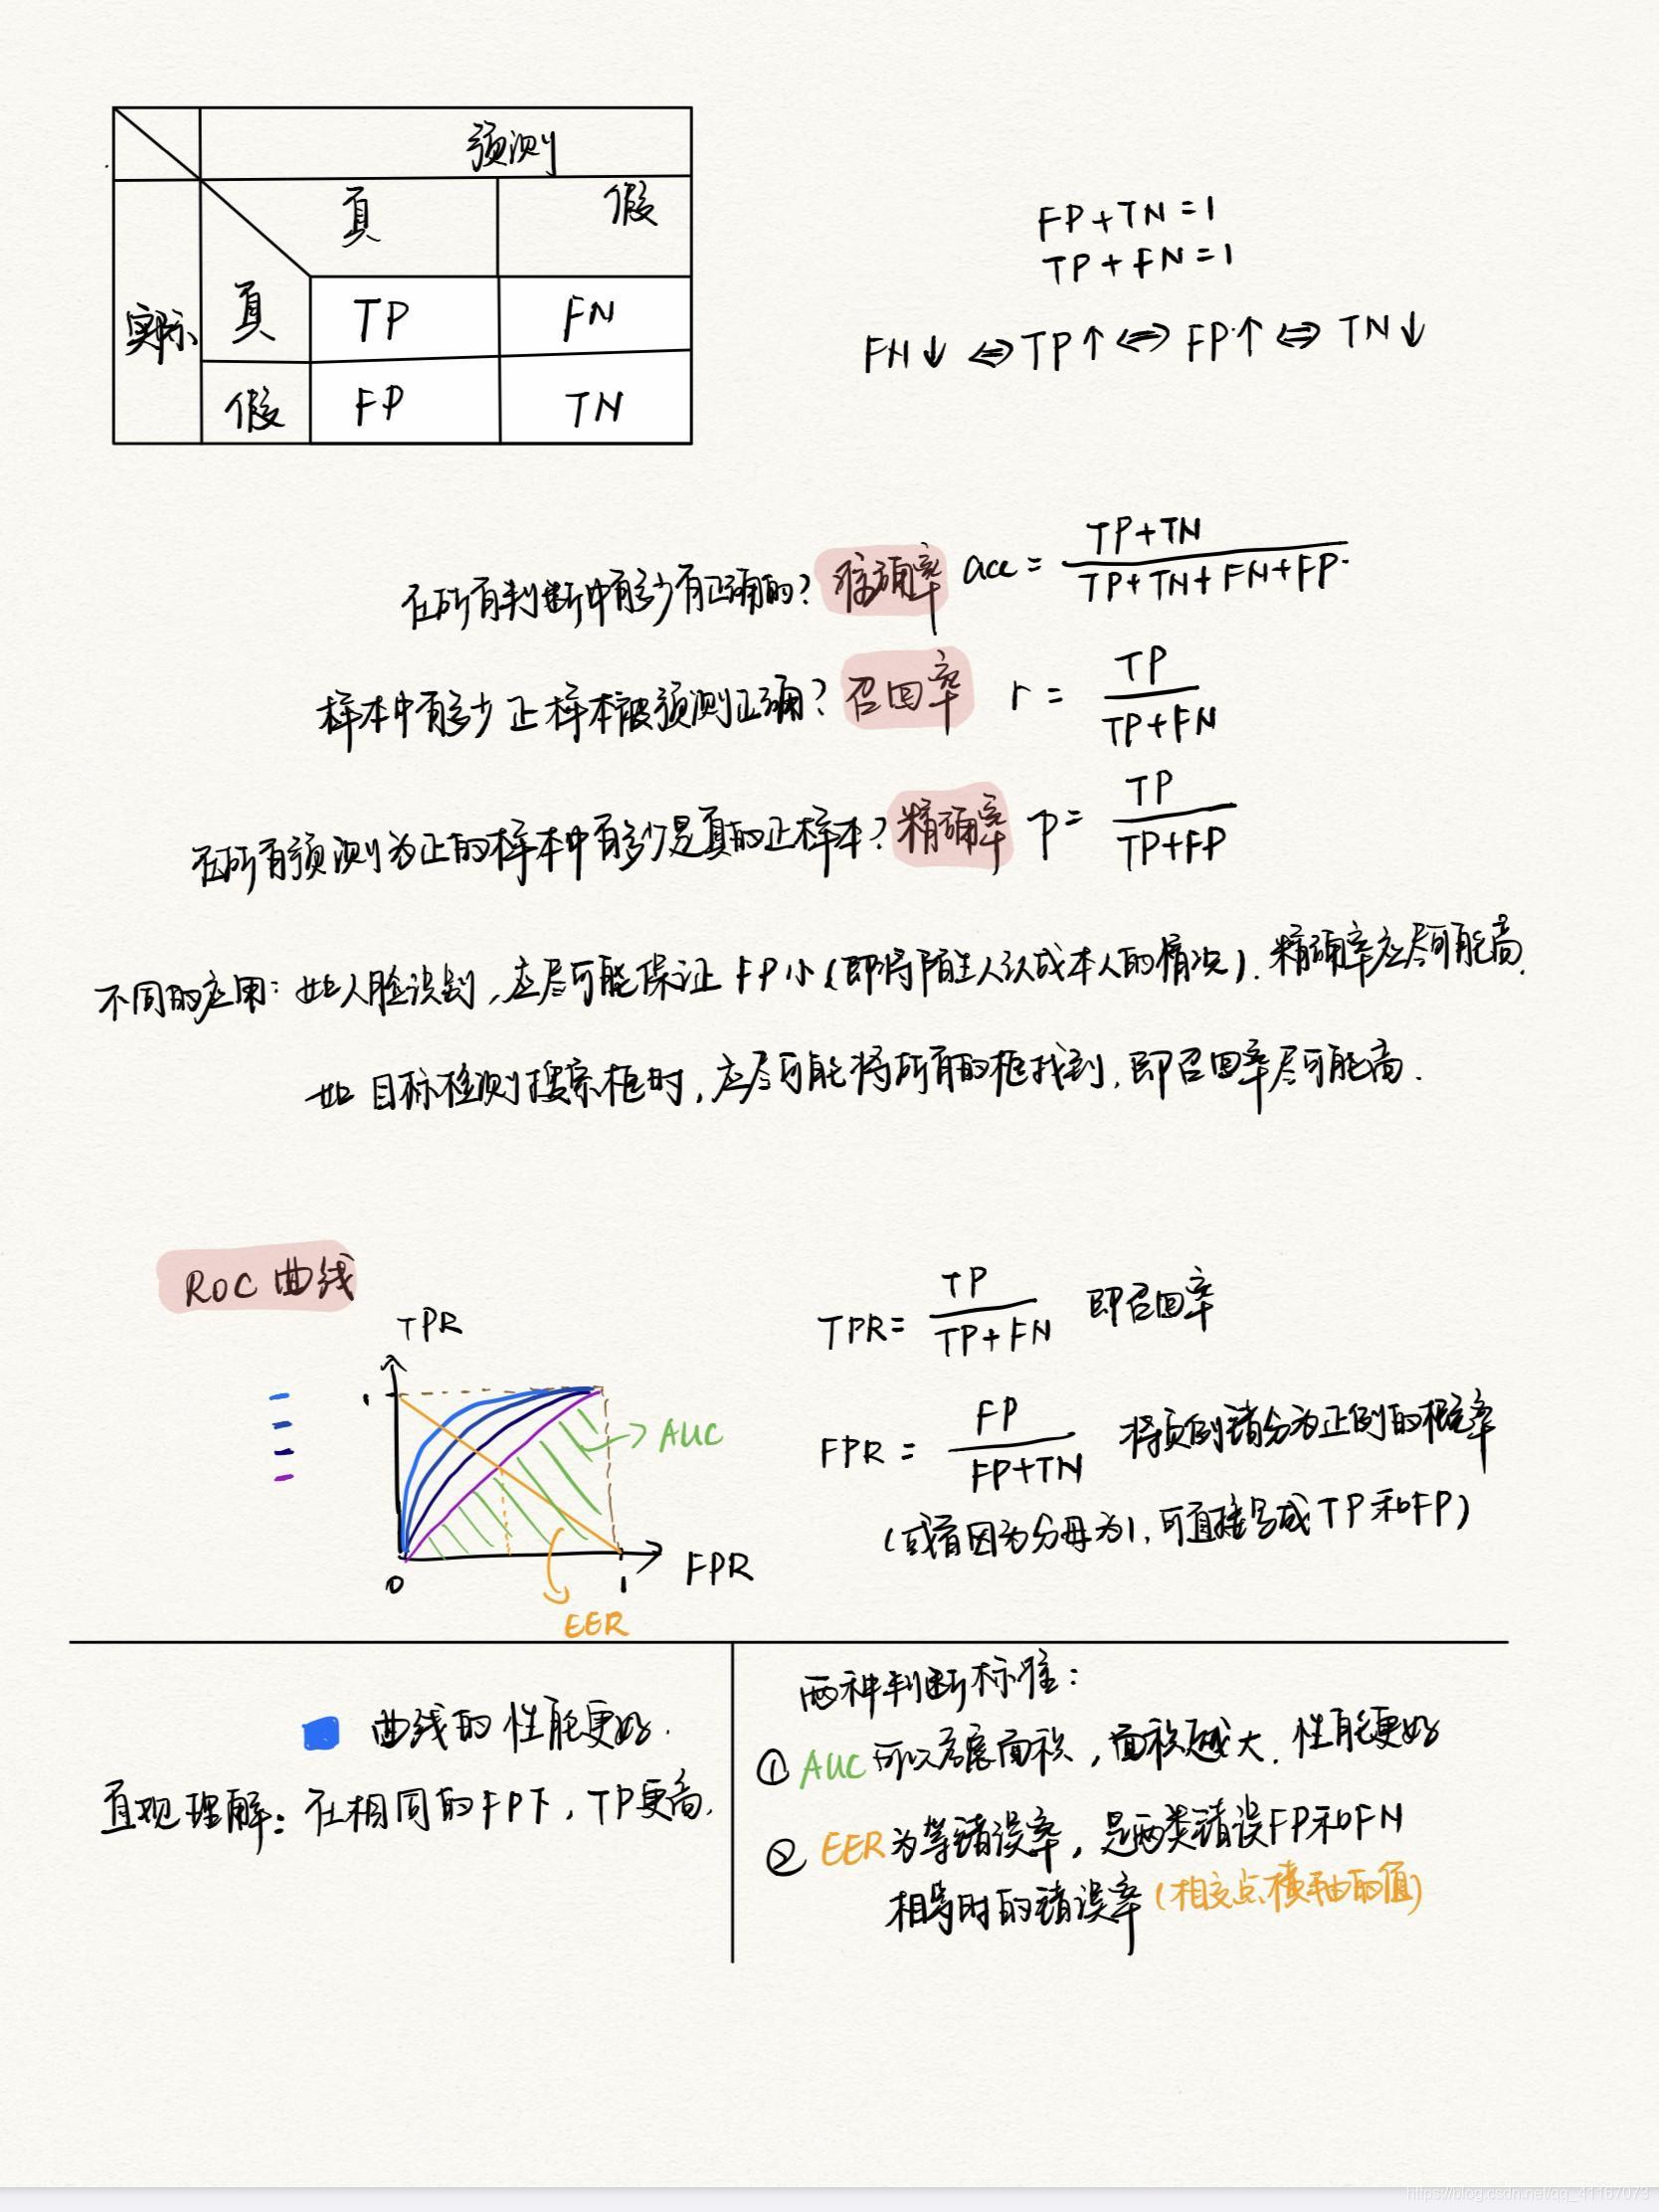 预测
真 假
实际 真 TP FN
假 FP TN
FP+TN=1
TP+FN=1
FN↓ ⇔ TP↑ ⇔ FP↑ ⇔ TN↓
在所有判断中有多少有正确的? 准确率 acc = (TP+TN)/(TP+TN+FN+FP)
样本中有多少正样本被预测正确? 召回率 r = TP/(TP+FN)
在所有预测为正的样本中有多少是真的正样本? 精确率 p = TP/(TP+FP)
不同的应用: 如人脸识别, 应尽可能保证 FP小 (即将陌生人认成本人的情况). 精确率应尽可能高.
如目标检测搜索框时, 应尽可能将所有的框找到, 即召回率尽可能高.
ROC 曲线
TPR
1
AUC
0
1
FPR
EER
TPR = TP/(TP+FN) 即召回率
FPR = FP/(FP+TN) 将负例错分为正例的概率
(或者因为分母为1, 可直接写成 TP 和 FP)
曲线的性能更好.
直观理解: 在相同的FP下, TP更高.
两种判断标准:
① AUC 所以方展面积, 面积越大. 性能更好
② EER 为等错误率, 是两类错误FP和FN
相等时的错误率 (相交点横轴的值)
https://blog.csdn.net/qq_41167073